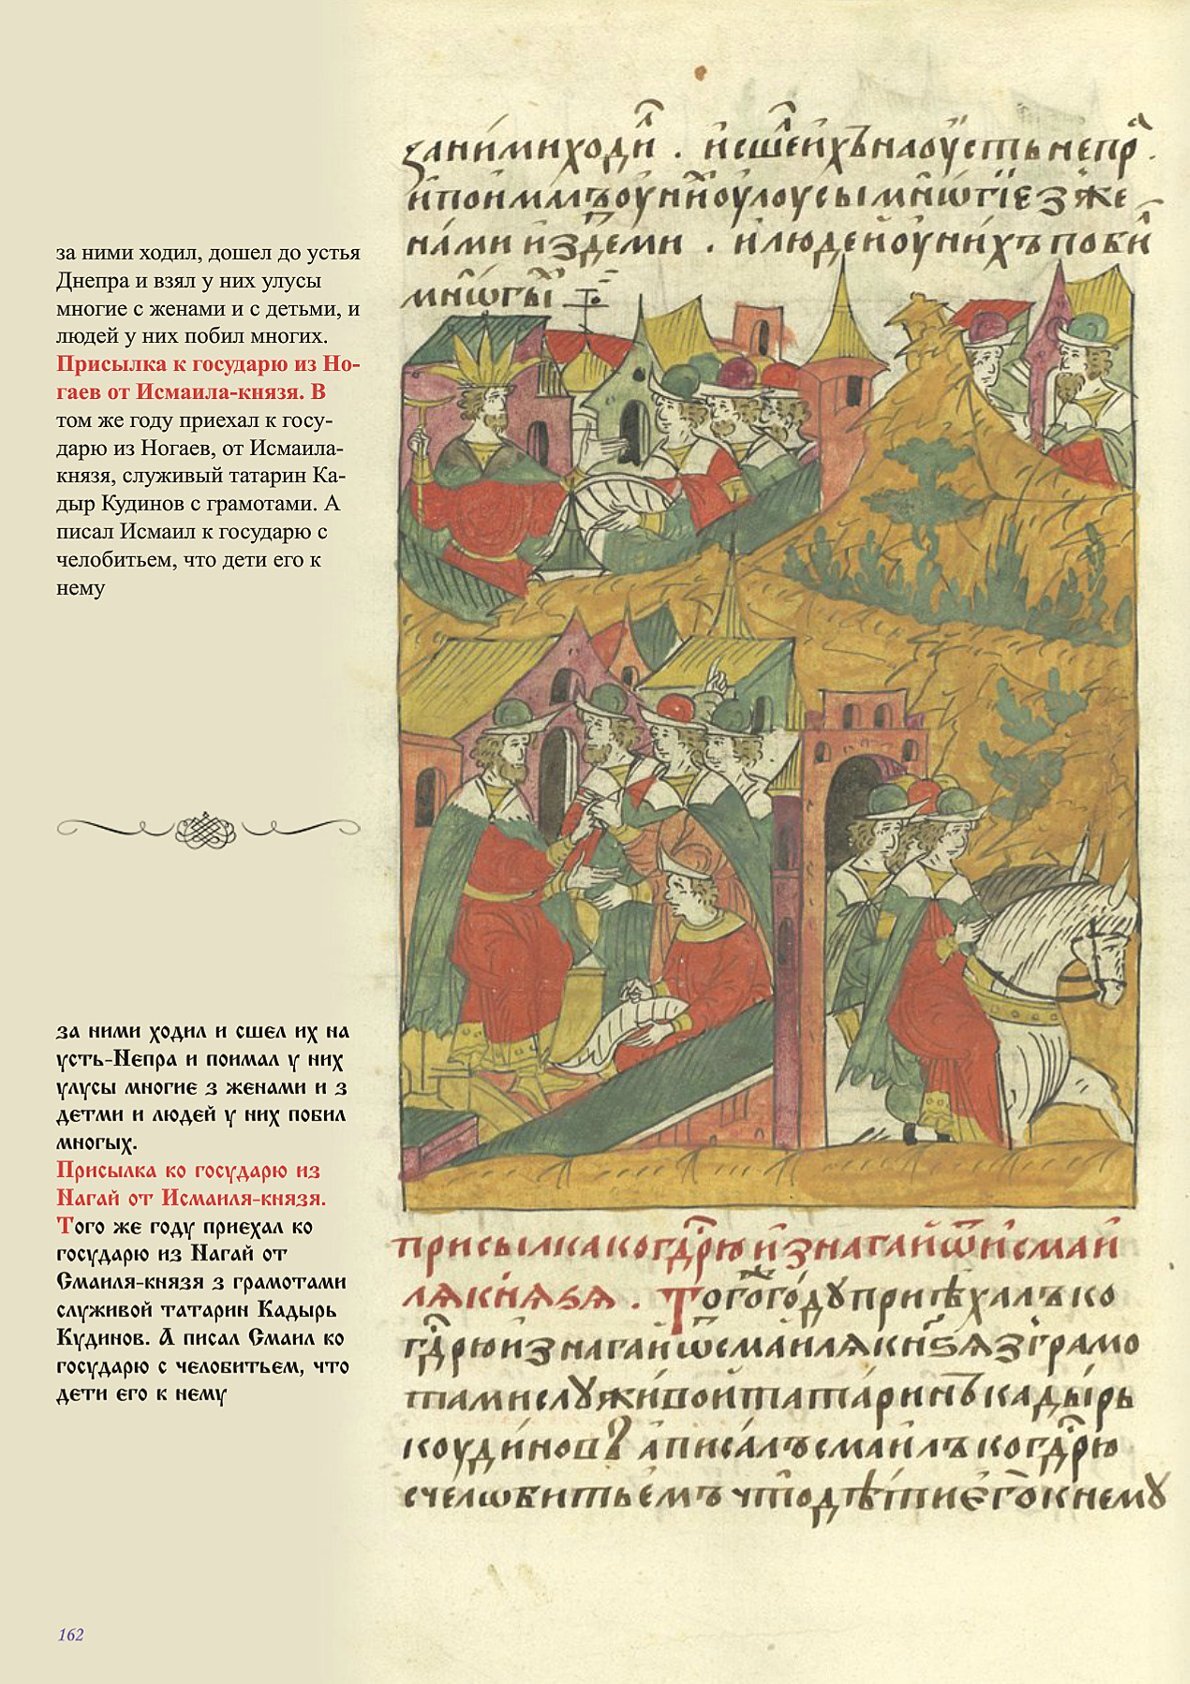 за ними ходил, дошел до устья
Днепра и взял у них улусы
многие с женами и с детьми, и
людей у них побил многих.
Присылка к государю из Но-
гаев от Исмаила-князя. В
том же году приехал к госу-
дарю из Ногаев, от Исмаила-
князя, служивый татарин Ка-
дыр Кудинов с грамотами. А
писал Исмаил к государю с
челобитьем, что дети его к
нему
за ними ходил и сшел их на
усть-Непра и поимал у них
улусы многие з женами и з
детми и людей у них побил
многых.
Присылка ко государю из
Нагай от Исмаиля-князя.
Того же году приехал ко
государю из Нагай от
Смаиля-князя з грамотами
служивой татарин Кадырь
Кудинов. А писал Смаил ко
государю с челобитьем, что
дети его к нему
162
заними ходил . исшелихъ наоусть непра .
ипоималъ оуних оулоусы мнѡгие зже
нами издетми . илюдей оунихъ побил
мнѡгы
присылка когдрю изнагай ѿисмаи
лѧ кнѧзѧ . Тогоже году приѣхалъ ко
гдрю изнагай ѿсмаилѧ кнѧзѧ зграмо
тами служивой татаринъ кадырь
коудинов апиcалъ смаилъ когдрю
счелѡбитьемъ что дѣти его кнему